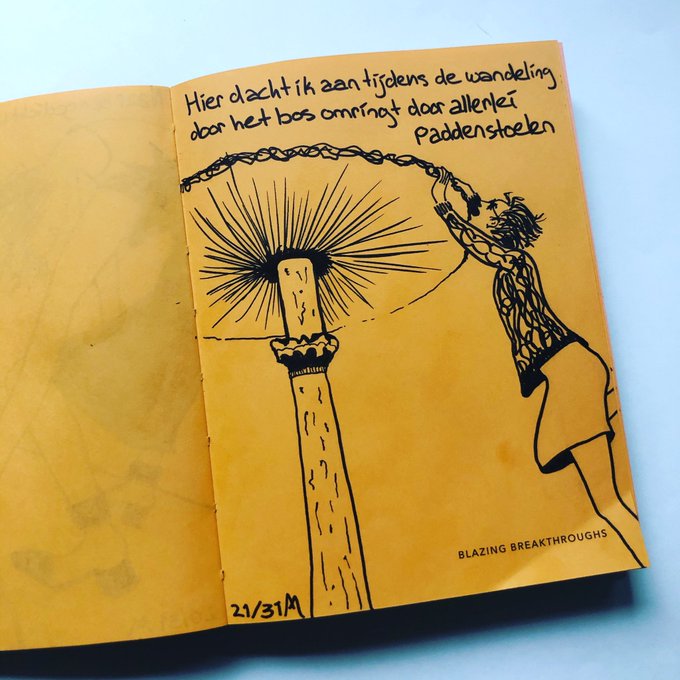 Hier dacht ik aan tijdens de wandeling
door het bos omringt door allerlei
paddenstoelen
BLAZING BREAKTHROUGHS
21/31